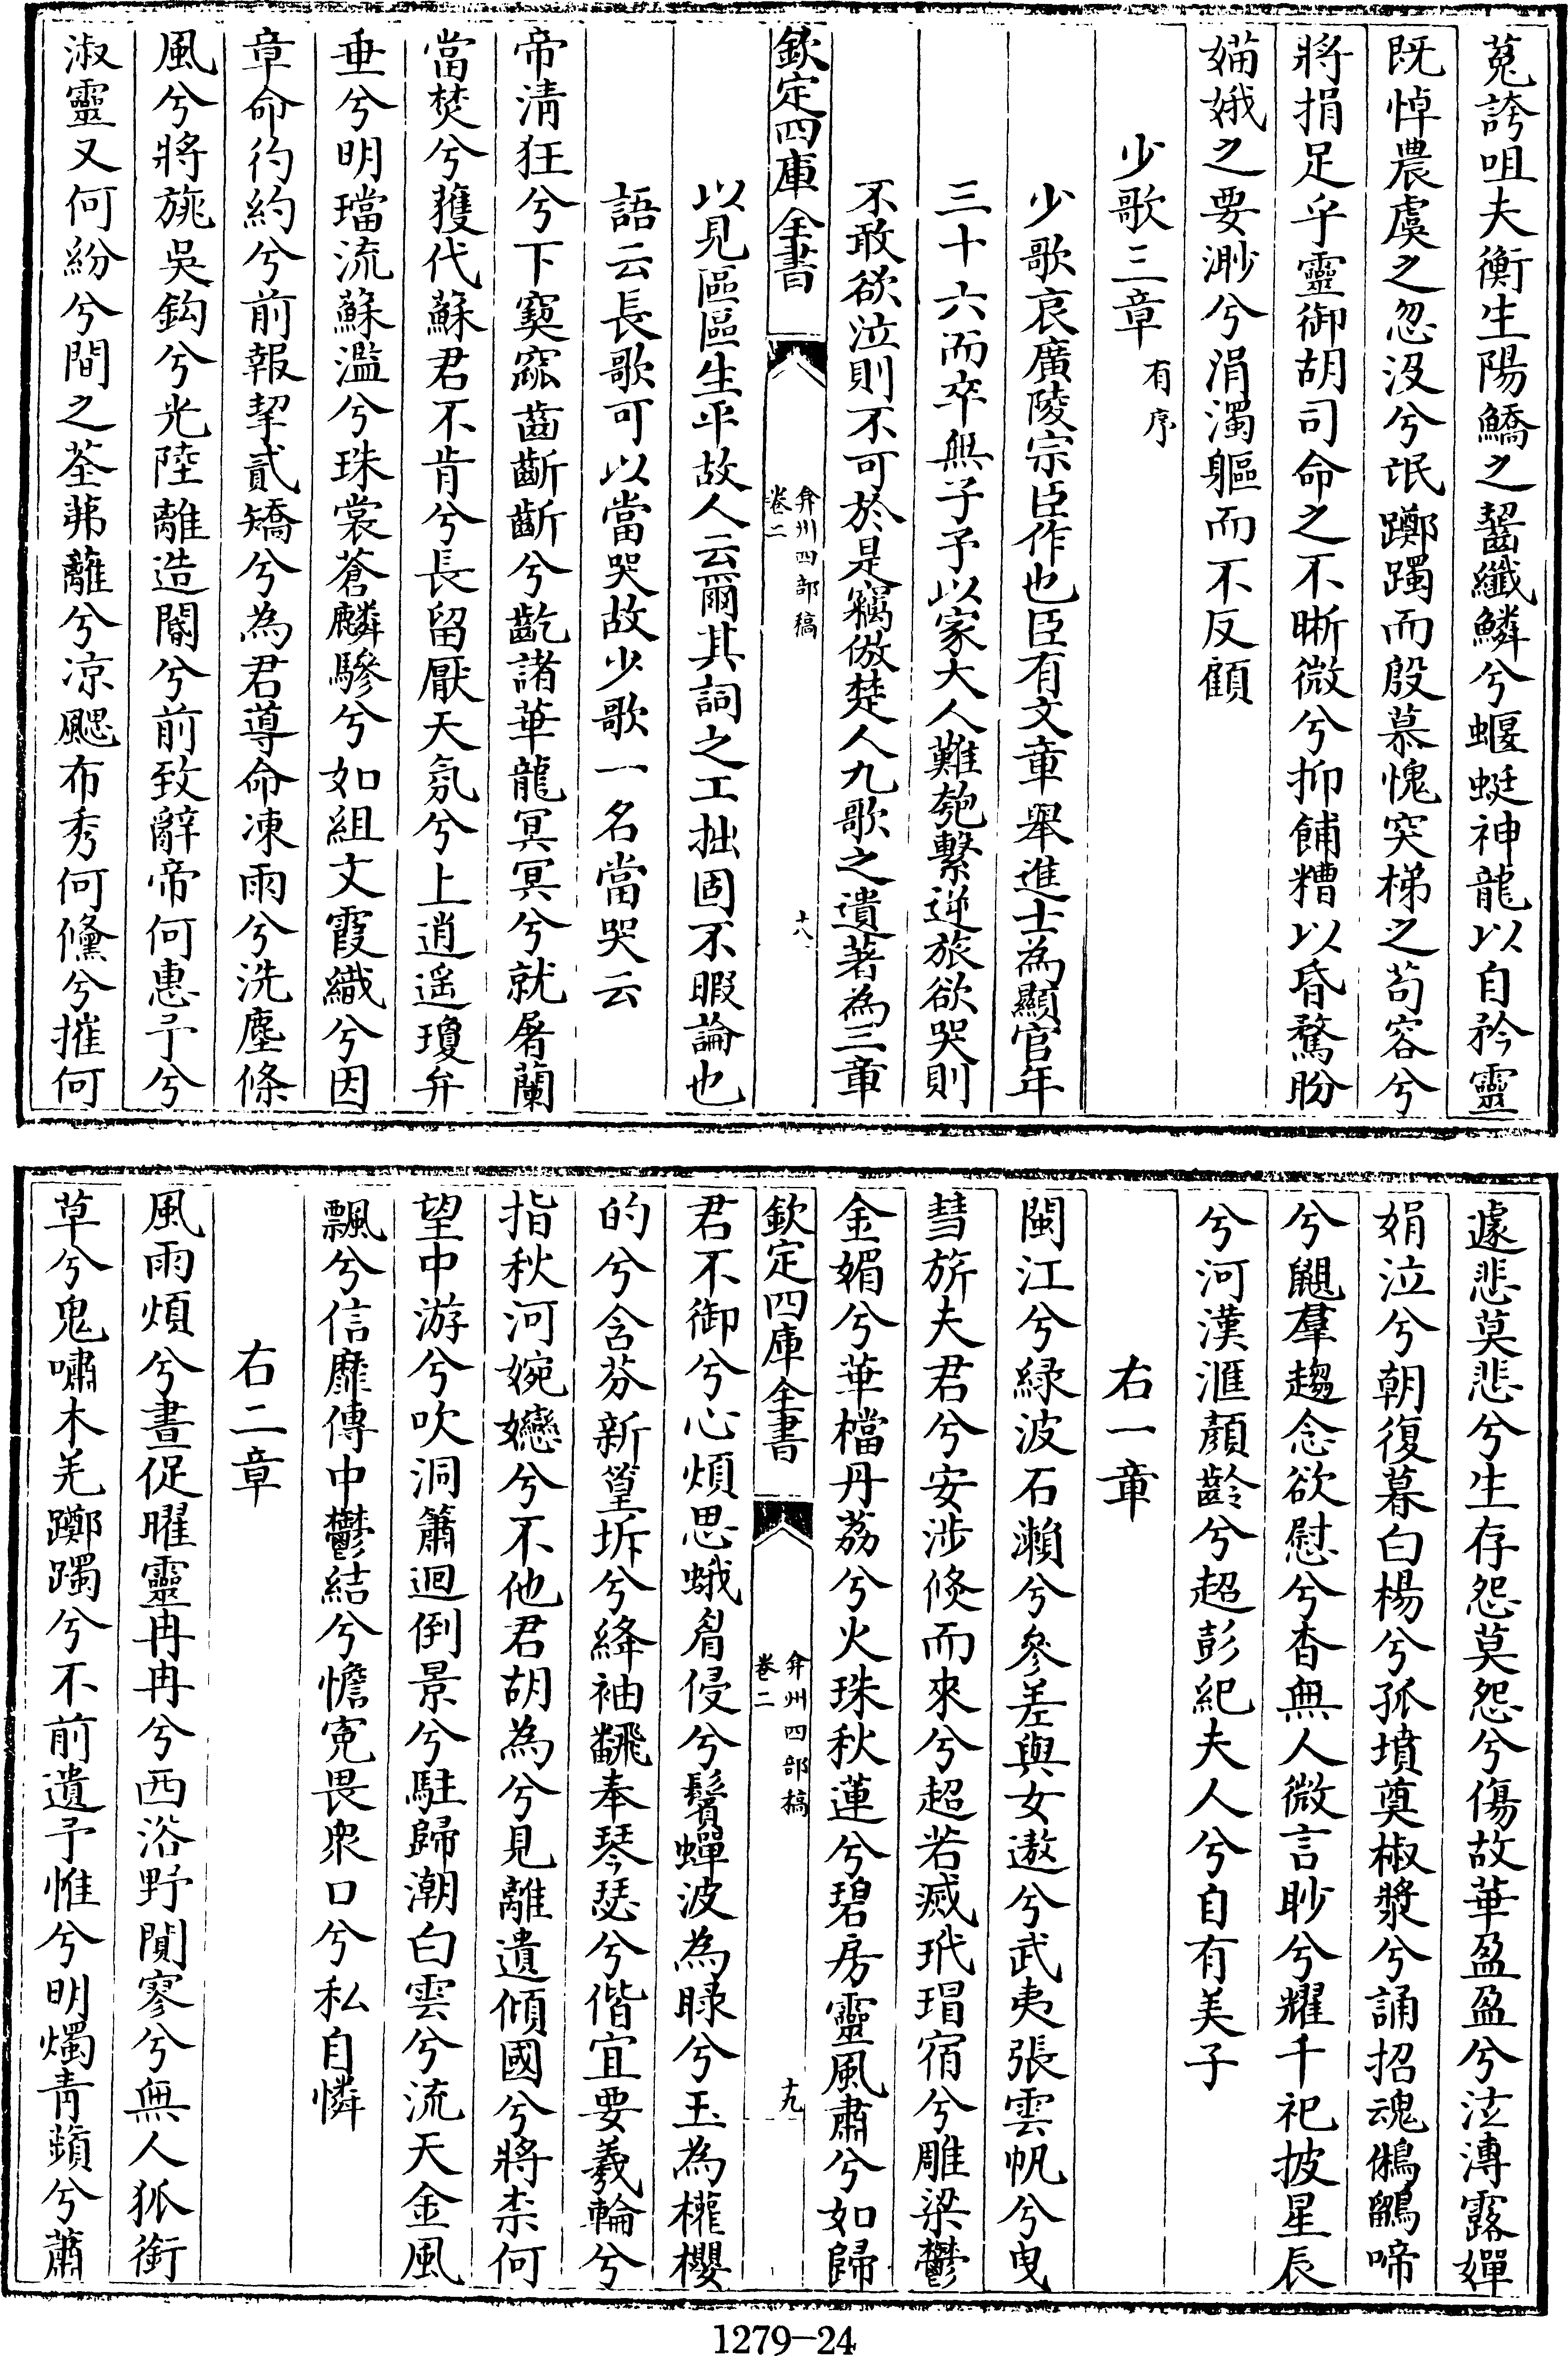 蒐誇咀夫衡生陽鱎之齧纖鱗兮蝘蜓神龍以自矜靈
既悼農虞之忽沒兮氓躑躅而殷慕愧突梯之苟容兮
將捐足乎靈御胡司命之不晰微兮抑餔糟以昏騖盼
媌娥之要渺兮涓濁軀而不反顧
少歌三章有序
少歌哀廣陵宗臣作也臣有文章舉進士為顯官年
三十六而卒無子予以家大人難匏繫逆旅欲哭則
不敢欲泣則不可於是竊倣楚人九歌之遺著為三章
欽定四庫全書
弇州四部稿
卷二
十八
以見區區生平故人云爾其詞之工拙固不暇論也
語云長歌可以當哭故少歌一名當哭云
帝淸狂兮下窫窳齒齗齗兮齕諸華龍冥冥兮就屠蘭
當焚兮獲代蘇君不肯兮長留厭天氛兮上逍遥瓊弁
垂兮明璫流蘇濫兮珠裳蒼麟驂兮如組文霞織兮因
章命彴約兮前報挈貳矯兮為君導命凍雨兮洗塵條
風兮將旐吳鈎兮光陸離造閽兮前致辭帝何惠予兮
淑靈又何紛兮間之荃茀離兮凉颸布秀何儵兮摧何
遽悲莫悲兮生存怨莫怨兮傷故華盈盈兮泣漙露嬋
娟泣兮朝復暮白楊兮孤墳奠椒漿兮誦招魂鵂鶹啼
兮鼯羣趨念欲慰兮杳無人微言眇兮耀千祀披星辰
兮河漢滙顏齡兮超彭紀夫人兮自有美子
右一章
閩江兮緑波石瀨兮參差與女遨兮武夷張雲帆兮曳
彗旂夫君兮安涉倏而來兮超若滅玳瑁宿兮雕梁鬱
金媚兮華檔丹荔兮火珠秋蓮兮碧房靈風肅兮如歸
欽定四庫全書
弇州四部稿
卷二
十九
君不御兮心煩思蛾眉侵兮鬢蟬波為睩兮玉為權櫻
的兮含芬新篁坼兮絳袖飜奉琴瑟兮偕宜要羲輪兮
指秋河婉孌兮不他君胡為兮見離遺傾國兮將柰何
望中游兮吹洞簫迴倒景兮駐歸潮白雲兮流天金風
飄兮信靡傳中鬱結兮憺寃畏衆口兮私自憐
右二章
風雨煩兮晝促曜靈冉冉兮西浴野闃寥兮無人狐銜
草兮鬼嘯木羌躑躅兮不前遺予惟兮明燭青蘋兮蕭
1279—24